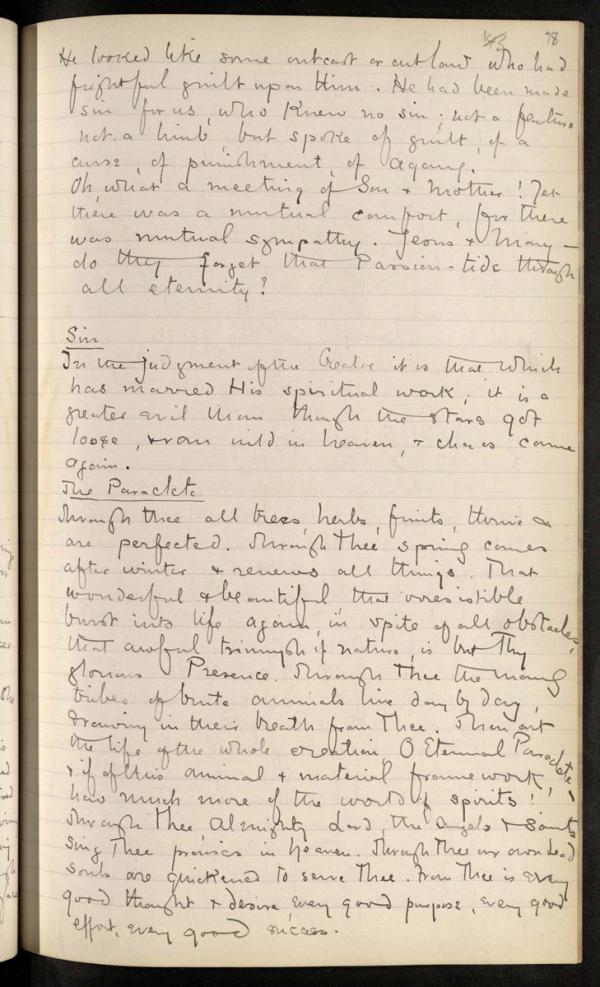 98
He looked like some outcast or outlaw who had
frightful guilt upon Him. He had been made
sin for us, who knew no sin; not a feature
not a limb, but spoke of guilt, of a
curse, of punishment, of agony.
Oh, what a meeting of Son & Mother! Yet
there was a mutual comfort, for there
was mutual sympathy. Jesus & Mary –
do they forget that Passion-tide through
all eternity?
Sin
In the judgment of the Creator it is that which
has marred His spiritual work; it is a
greater evil than though the stars got
loose, & ran wild in heaven, & chaos came
again.
The Paraclete
Through thee all trees, herbs, fruits, thrive &
are perfected. Through Thee spring comes
after winter & renews all things. That
wonderful & beautiful that irresistible
burst into life again, in spite of all obstacles,
that awful triumph of nature, is but Thy
glorious Presence. Through Thee the many
tribes of brute animals live day by day,
drawing in their breath from Thee. Thou art
the life of the whole creation, O Eternal Paraclete,
& if of this animal & material framework,
how much more of the world of spirits!
Through Thee, Almighty Lord, the angels & saints
sing Thee praises in heaven. Through Thee our own dead
souls are quickened to serve Thee. From Thee is every
good thought & desire, every good purpose, every good
effort, every good success.